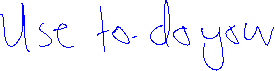 Use to-do your